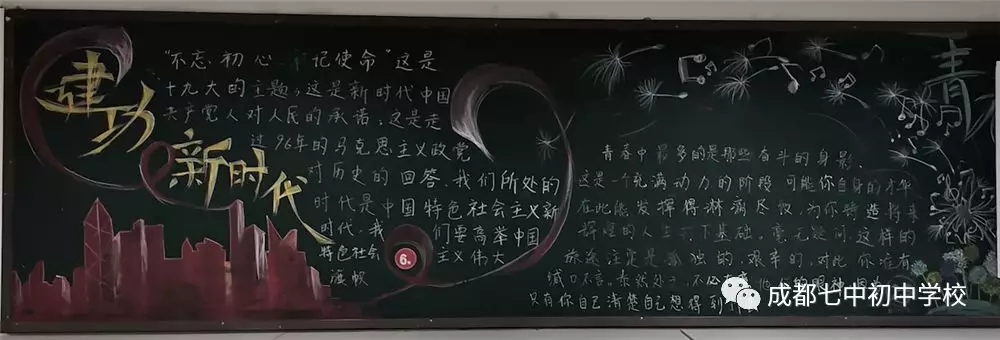 建功
新时代
"不忘初心 记使命"这是
十九大的主题，这是新时代中国
共产党人对人民的承诺，这是走
过96年的马克思主义政党
对历史的回答。我们所处的
时代是中国特色社会主义新
时代，我 们要高举中国
特色社会 主义伟大
旗帜
6.
青
青春中最多的是那些奋斗的身影，
这是一个充满动力的阶段 可能你自身的才华
在此能发挥得淋漓尽致，为你铸造将来
辉煌的人生打下基础。毫无疑问，这样的
旅途注定是孤独的，艰辛的，对此你
缄口不言。 不必 的眼神，因为
只有你自己清楚自己想得到
成都七中初中学校